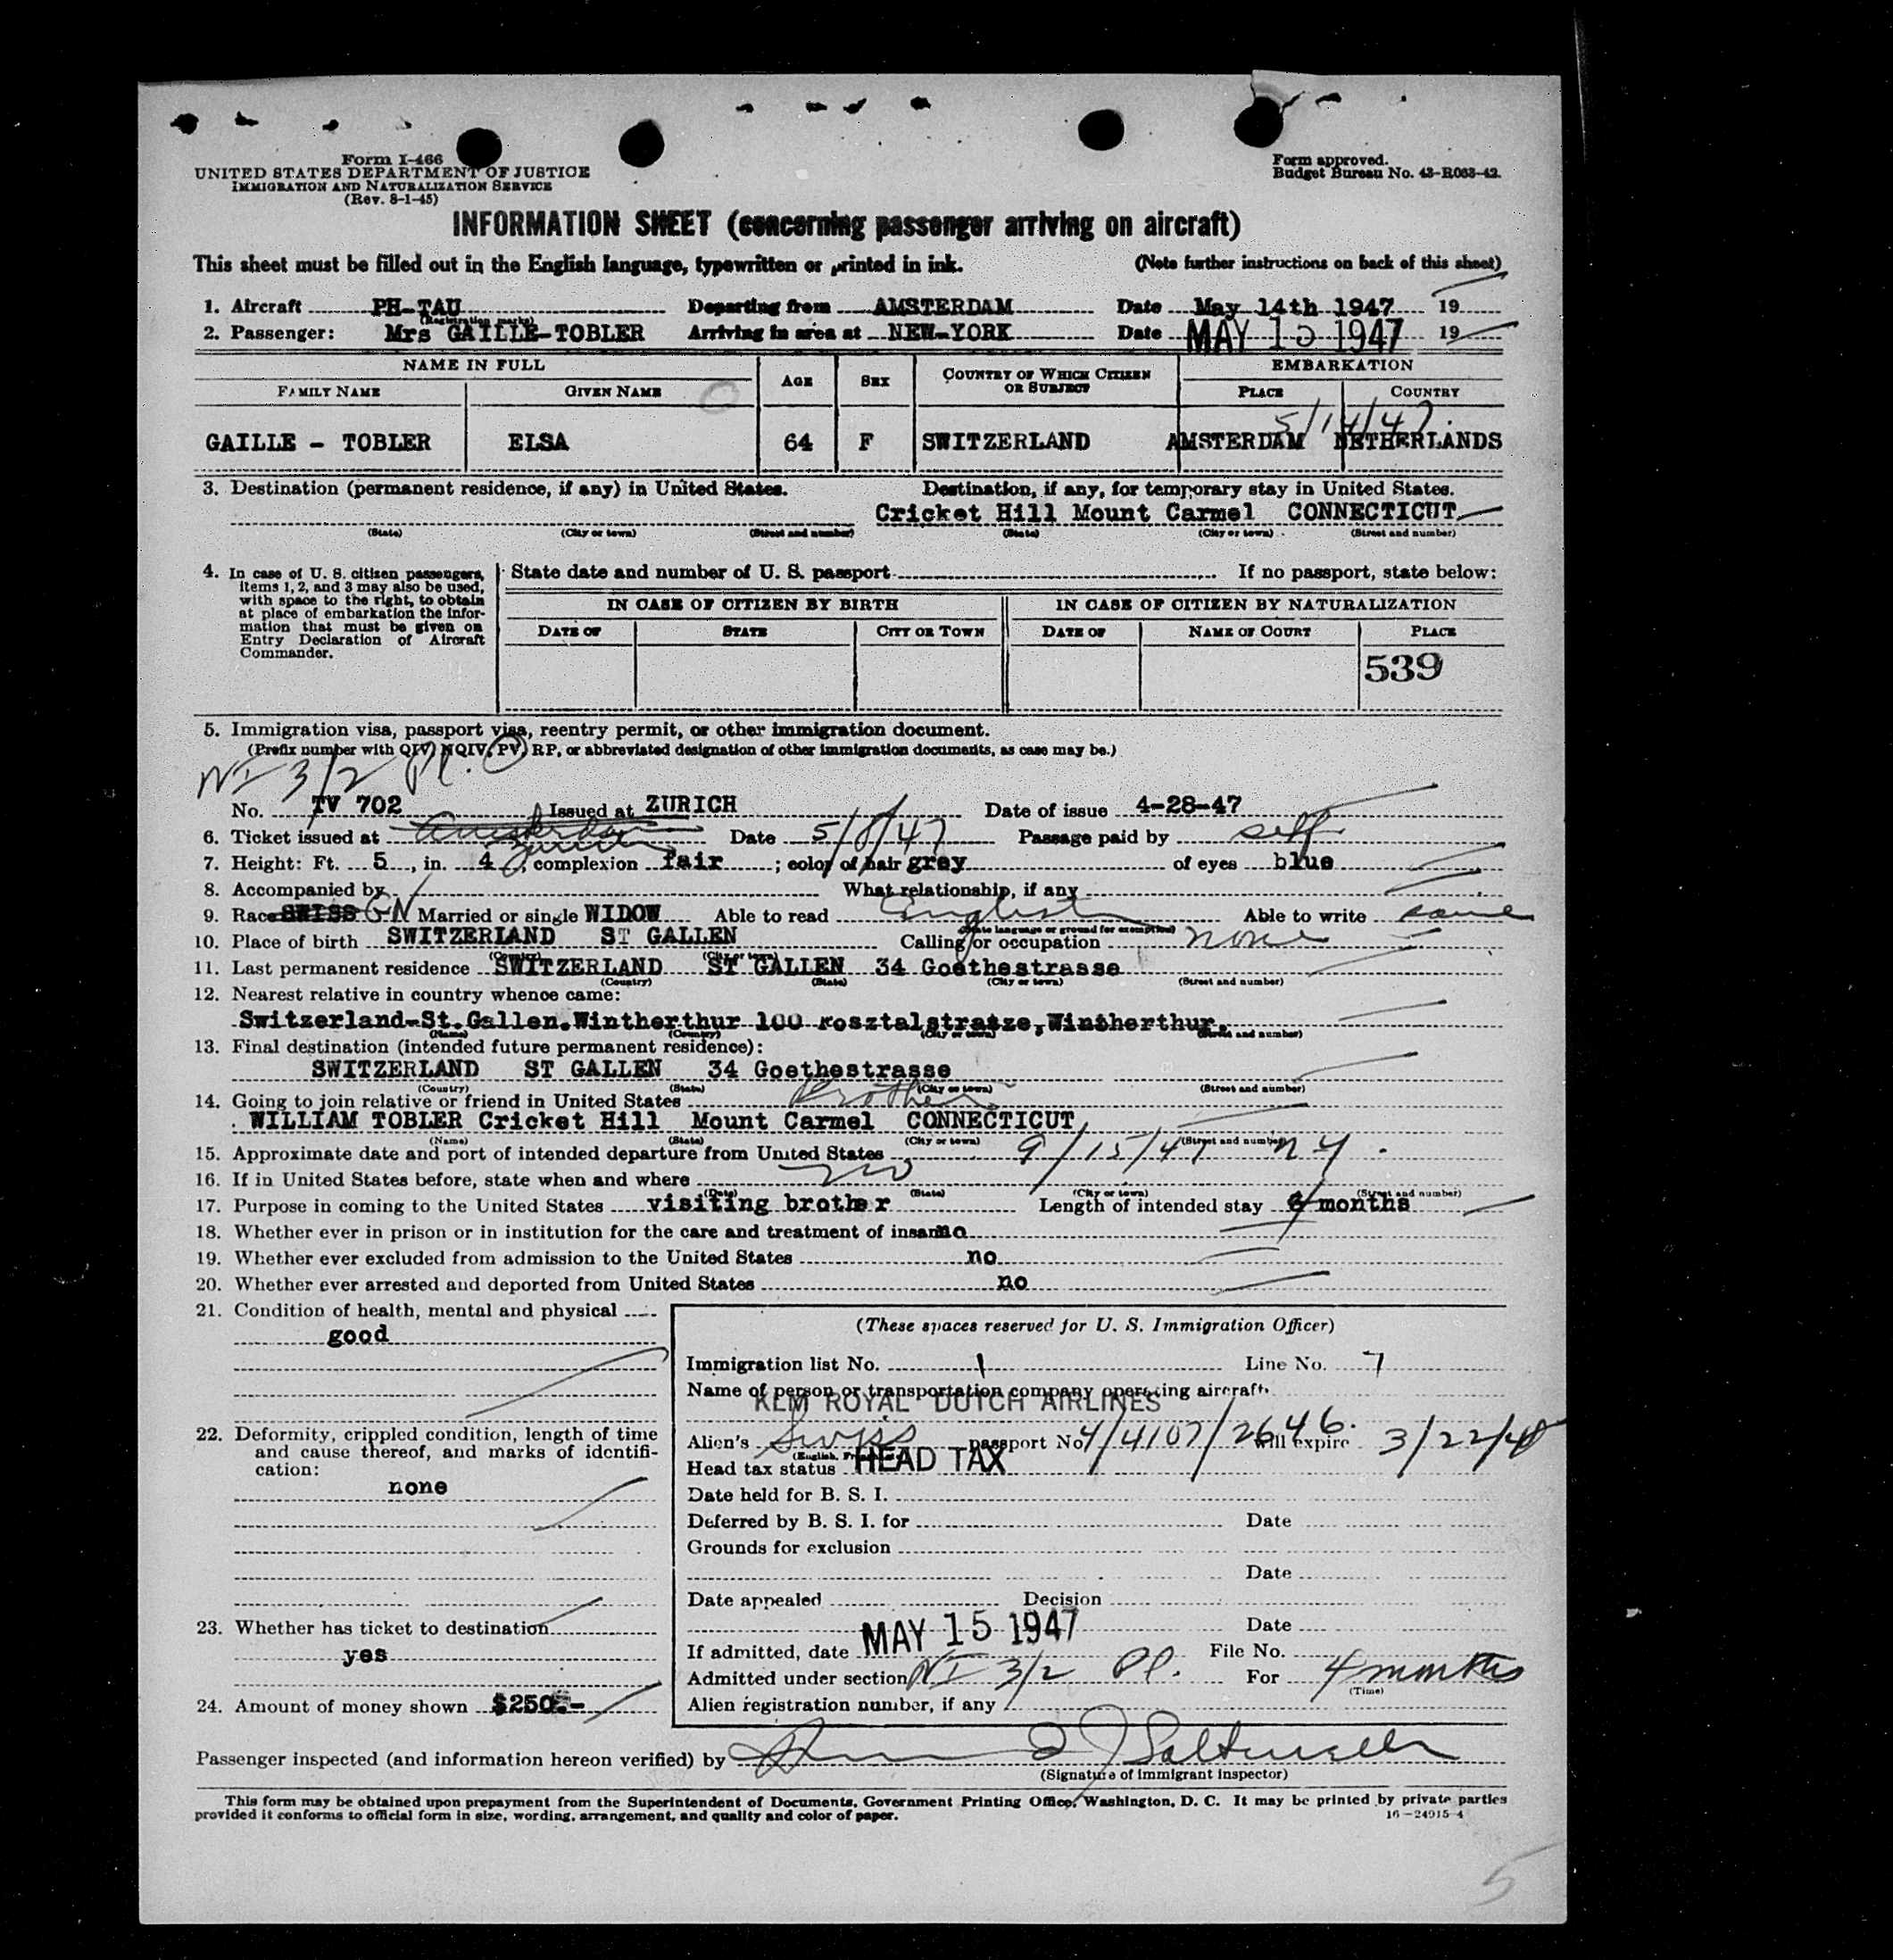 Form I-466
UNITED STATES DEPARTMENT OF JUSTICE
IMMIGRATION AND NATURALIZATION SERVICE
(Rev. 8-1-45)
Form approved.
Budget Bureau No. 43-R083-42.
INFORMATION SHEET (concerning passenger arriving on aircraft)
This sheet must be filled out in the English language, typewritten or printed in ink. (Note further instructions on back of this sheet)
1. Aircraft PH-TAU Departing from AMSTERDAM Date May 14th 1947 19
(Registration marks)
2. Passenger: Mrs GAILLE-TOBLER Arriving in area at NEW-YORK Date MAY 15 1947 19
NAME IN FULL AGE SEX COUNTRY OF WHICH CITIZEN OR SUBJECT EMBARKATION
FAMILY NAME GIVEN NAME PLACE COUNTRY
5/14/47.
GAILLE - TOBLER ELSA 64 F SWITZERLAND AMSTERDAM NETHERLANDS
3. Destination (permanent residence, if any) in United States. Destination, if any, for temporary stay in United States.
Cricket Hill Mount Carmel CONNECTICUT
(State) (City or town) (Street and number) (State) (City or town) (Street and number)
4. In case of U. S. citizen passengers, items 1, 2, and 3 may also be used, with space to the right, to obtain at place of embarkation the information that must be given on Entry Declaration of Aircraft Commander.
State date and number of U. S. passport If no passport, state below:
IN CASE OF CITIZEN BY BIRTH IN CASE OF CITIZEN BY NATURALIZATION
DATE OF STATE CITY OR TOWN DATE OF NAME OF COURT PLACE
539
5. Immigration visa, passport visa, reentry permit, or other immigration document.
(Prefix number with QIV, NQIV, PV, RP, or abbreviated designation of other immigration documents, as case may be.)
NI 3/2 Pl.
No. TV 702 Issued at ZURICH Date of issue 4-28-47
6. Ticket issued at Amsterdam Zurich Date 5/8/47 Passage paid by self
7. Height: Ft. 5, in. 4, complexion fair; color of hair grey of eyes blue
8. Accompanied by What relationship, if any
9. Race SWISS GN Married or single WIDOW Able to read English Able to write same
(State language or ground for exemption)
10. Place of birth SWITZERLAND ST GALLEN Calling or occupation none
(Country) (City or town)
11. Last permanent residence SWITZERLAND ST GALLEN 34 Goethestrasse
(Country) (State) (City or town) (Street and number)
12. Nearest relative in country whence came:
Switzerland-St.Gallen.Wintherthur 100 rosztalstratze, Wintherthur.
(Name) (Country) (City or town) (Street and number)
13. Final destination (intended future permanent residence):
SWITZERLAND ST GALLEN 34 Goethestrasse
(Country) (State) (City or town) (Street and number)
14. Going to join relative or friend in United States Brother
WILLIAM TOBLER Cricket Hill Mount Carmel CONNECTICUT
(Name) (State) (City or town) (Street and number)
15. Approximate date and port of intended departure from United States 9/15/47 NY.
16. If in United States before, state when and where no
(Date) (State) (City or town) (Street and number)
17. Purpose in coming to the United States visiting brother Length of intended stay months
18. Whether ever in prison or in institution for the care and treatment of insane no
19. Whether ever excluded from admission to the United States no
20. Whether ever arrested and deported from United States no
21. Condition of health, mental and physical
good
22. Deformity, crippled condition, length of time and cause thereof, and marks of identification:
none
23. Whether has ticket to destination
yes
24. Amount of money shown $250.-
(These spaces reserved for U. S. Immigration Officer)
Immigration list No. 1 Line No. 7
Name of person or transportation company operating aircraft
KLM ROYAL DUTCH AIRLINES
Alien's Swiss passport No. 4/4107/2646. will expire 3/22/48
Head tax status HEAD TAX
Date held for B. S. I.
Deferred by B. S. I. for Date
Grounds for exclusion
Date
Date appealed Decision
Date
If admitted, date MAY 15 1947 File No.
Admitted under section NI 3/2 Pl. For 4 months
(Time)
Alien registration number, if any
Passenger inspected (and information hereon verified) by
(Signature of immigrant inspector)
This form may be obtained upon prepayment from the Superintendent of Documents, Government Printing Office, Washington, D. C. It may be printed by private parties
provided it conforms to official form in size, wording, arrangement, and quality and color of paper. 16-24915-4
5